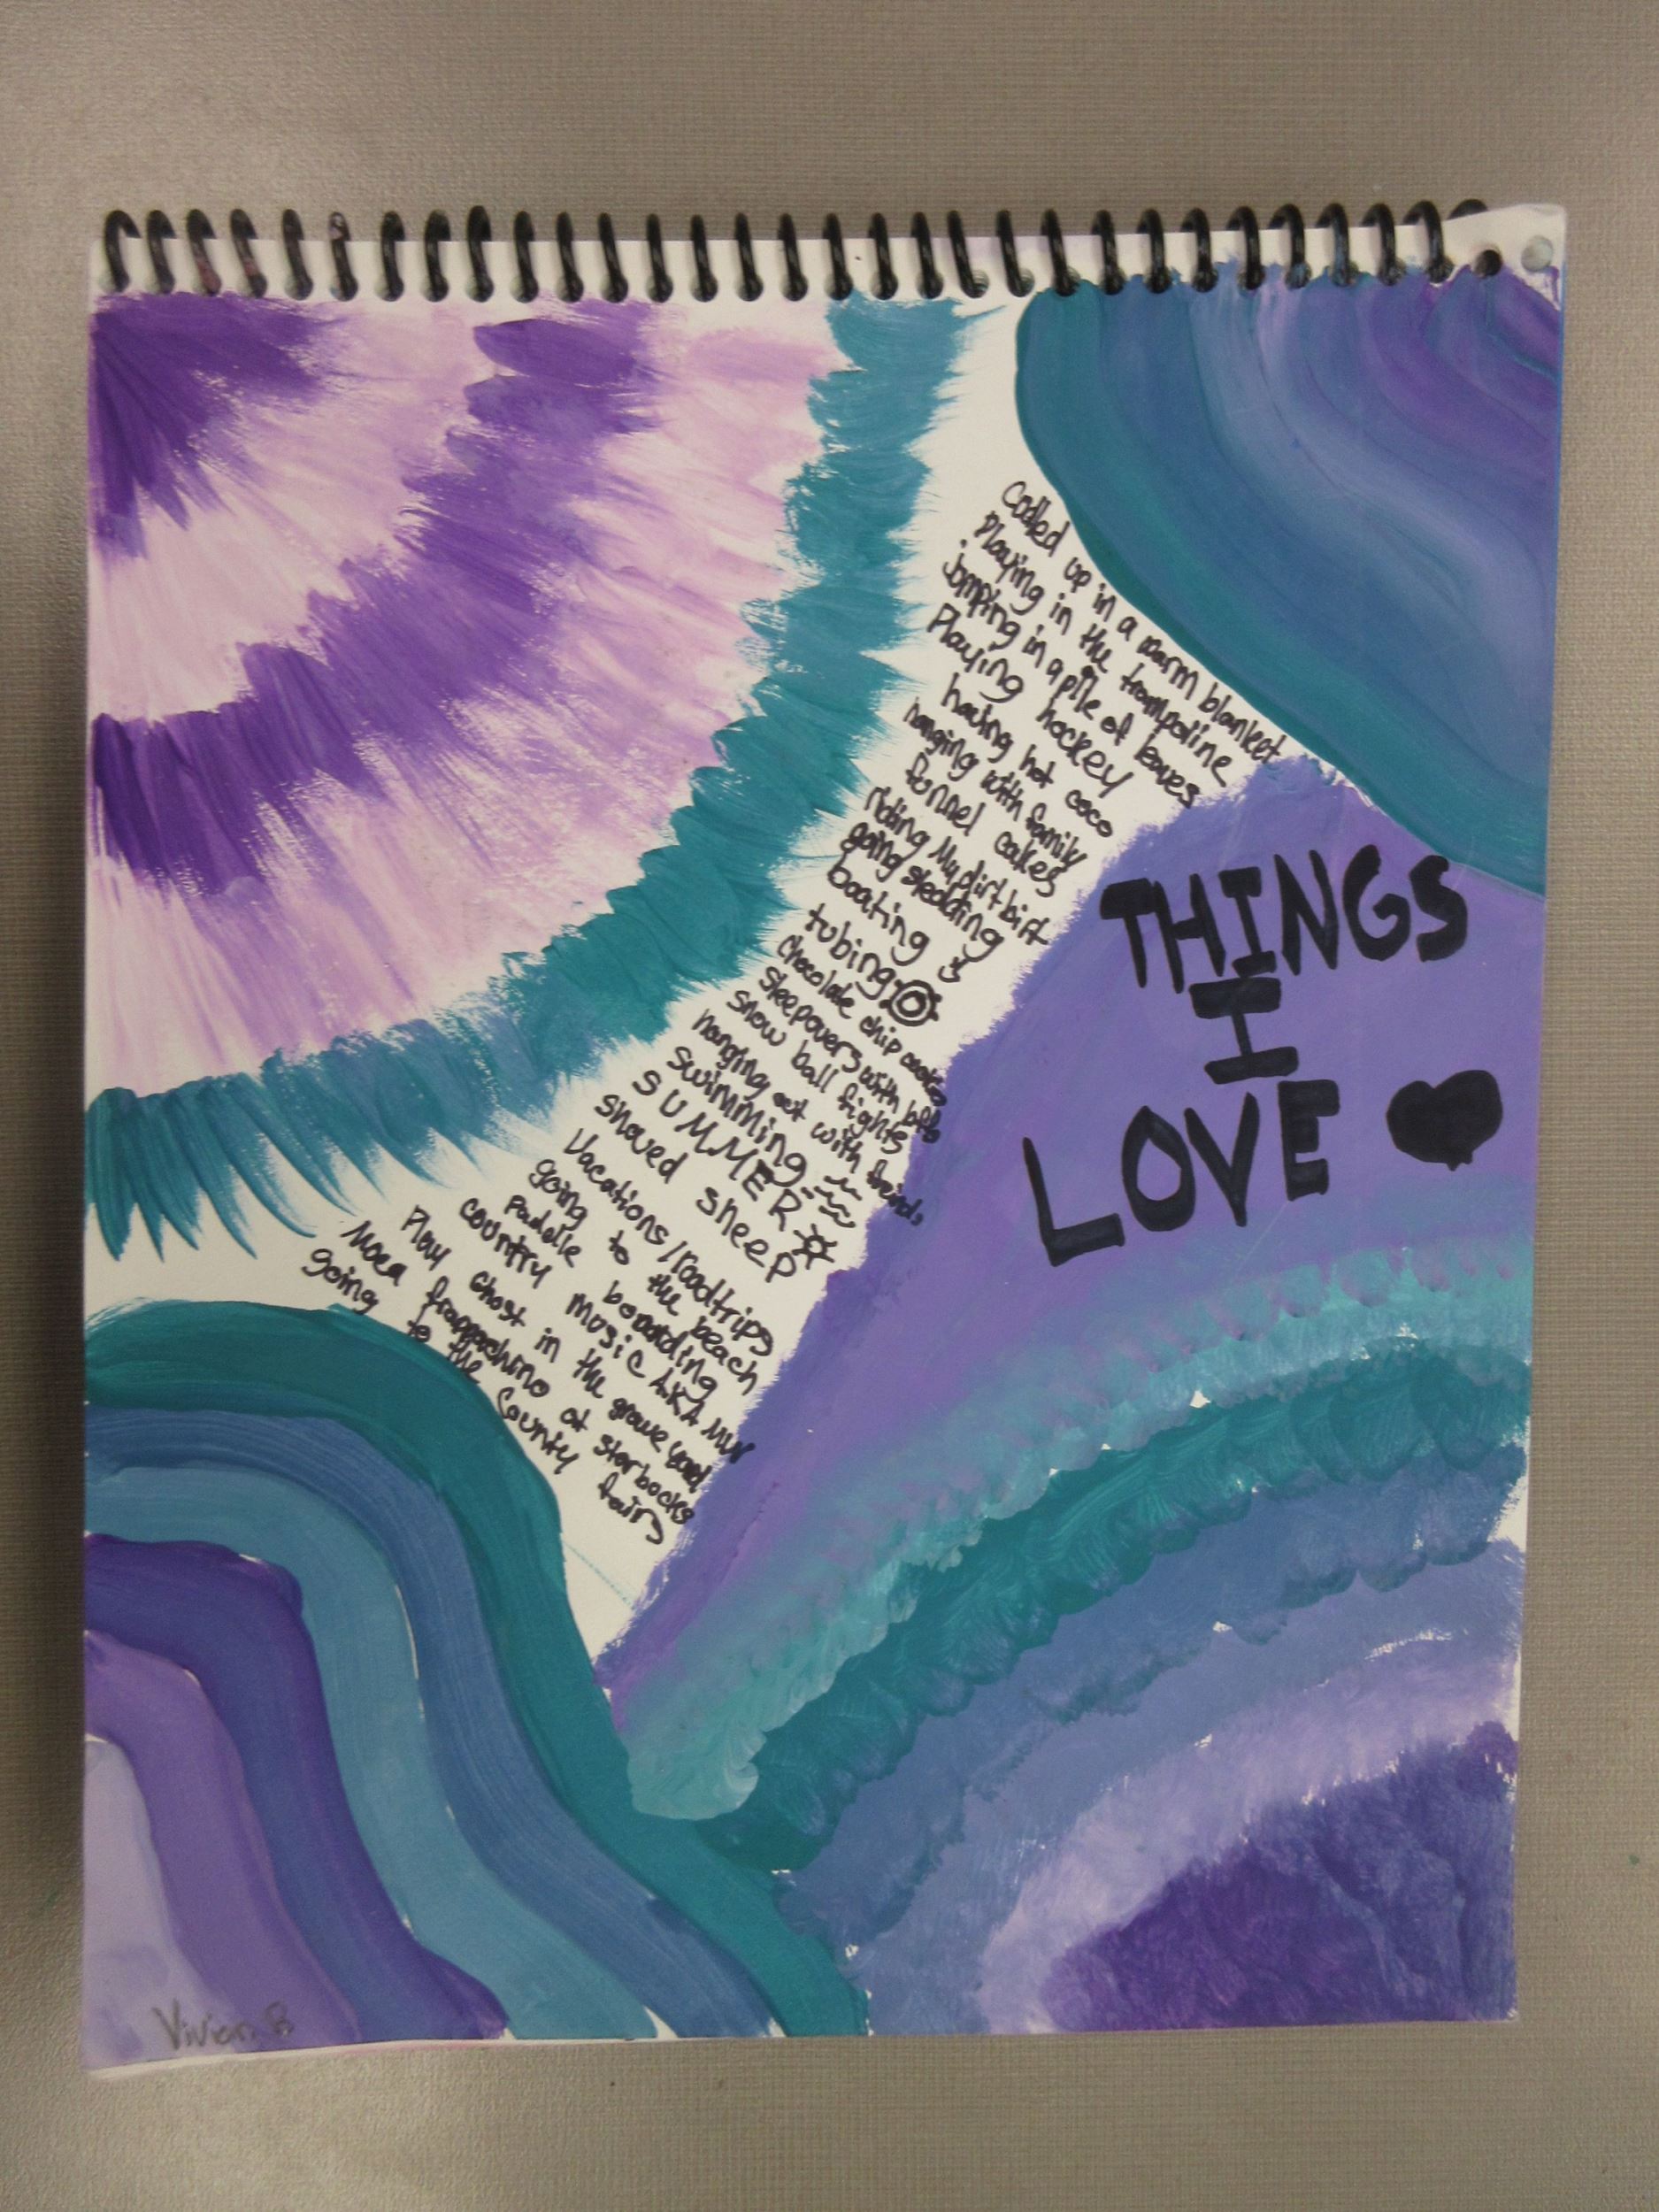 Codled up in a warm blanket
Playing in the trampoline
jumping in a pile of leaves
Playing hockey
having hot coco
hanging with family
funnel cakes
riding My dirt birt
going sledding
boating
tubing
chocolate chip cookies
sleepovers with bffs
snow ball fights
hanging out with freinds
swimming
SUMMER
shaved sheep
Vacations/roadtrips
going to the beach
Paddle boarding
country music A.K.A MW
Play ghost in the grave yard
Moca frappachino at starbucks
going to the County fairs
THINGS
I
LOVE
Vivian B